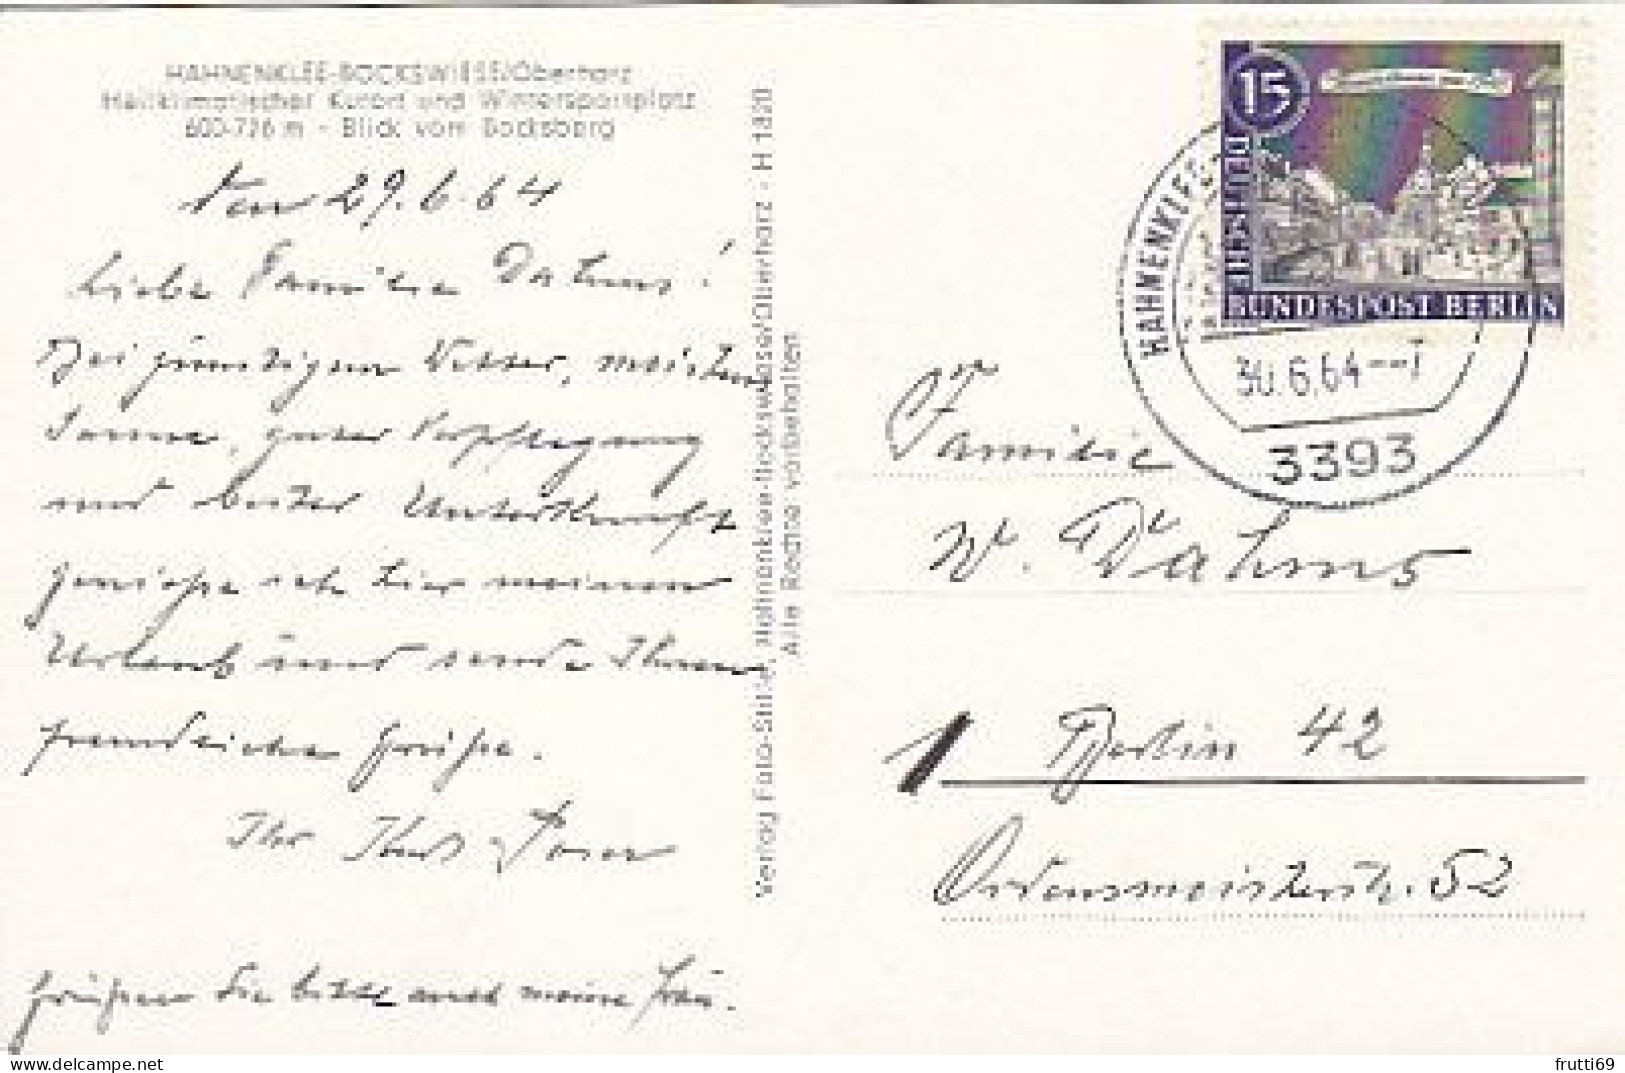 HAHNENKLEE-BOCKSWIESE/Oberharz
Heilklimatischer Kurort und Wintersportplatz
600-726 m - Blick vom Bocksberg
den 29.6.64
Liebe Familie Dahms!
Bei günstigem Wetter, meistens
Sonne, guter Verpflegung
und bester Unterkunft
genieße ich hier meinen
Urlaub und sende Ihnen
freundliche Grüße.
Ihr
Grüßen Sie bitte auch meine Frau.
Verlag Foto-Stille, Hahnenklee-Bockswiese/Oberharz - H 1820
Alle Rechte vorbehalten
15
BUNDESPOST BERLIN
HAHNENKLEE
30.6.64--
3393
Familie
W. Dahms
1 Berlin 42
Ordensmeisterstr. 52
https://www.delcampe.net
frutti69